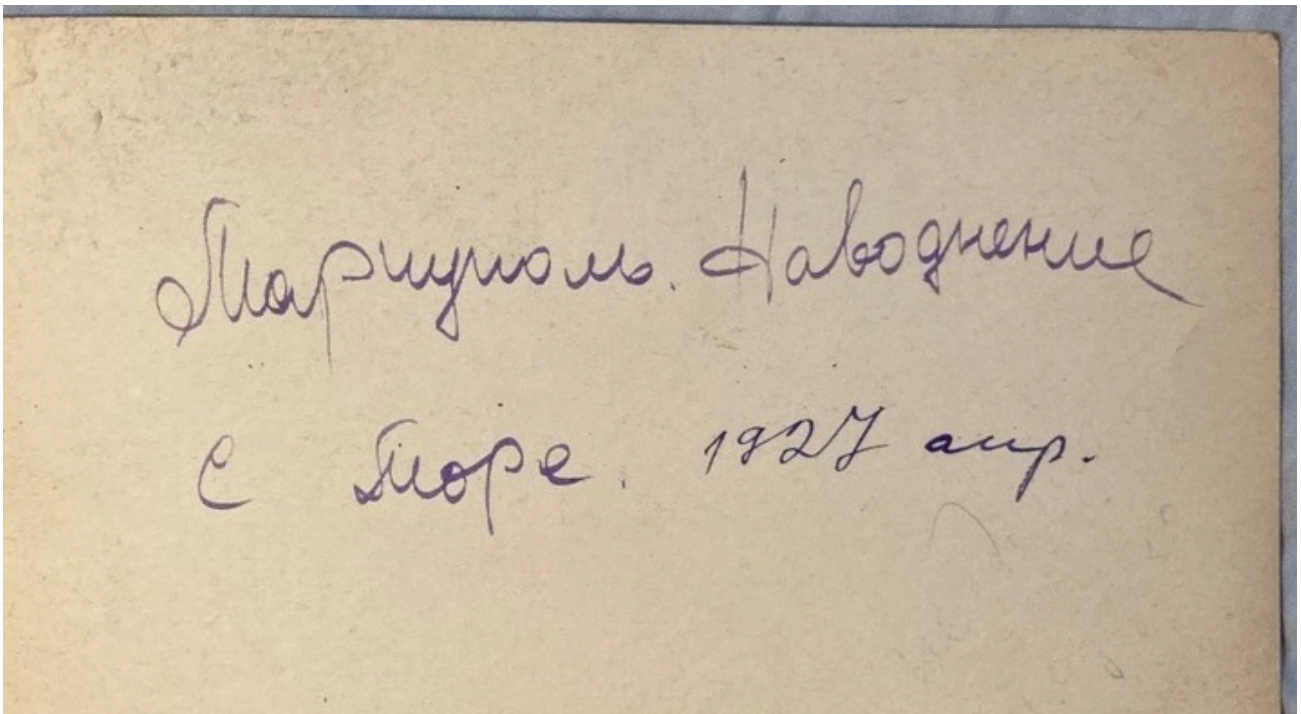 Мариуполь. Наводнение
с Море. 1927 апр.